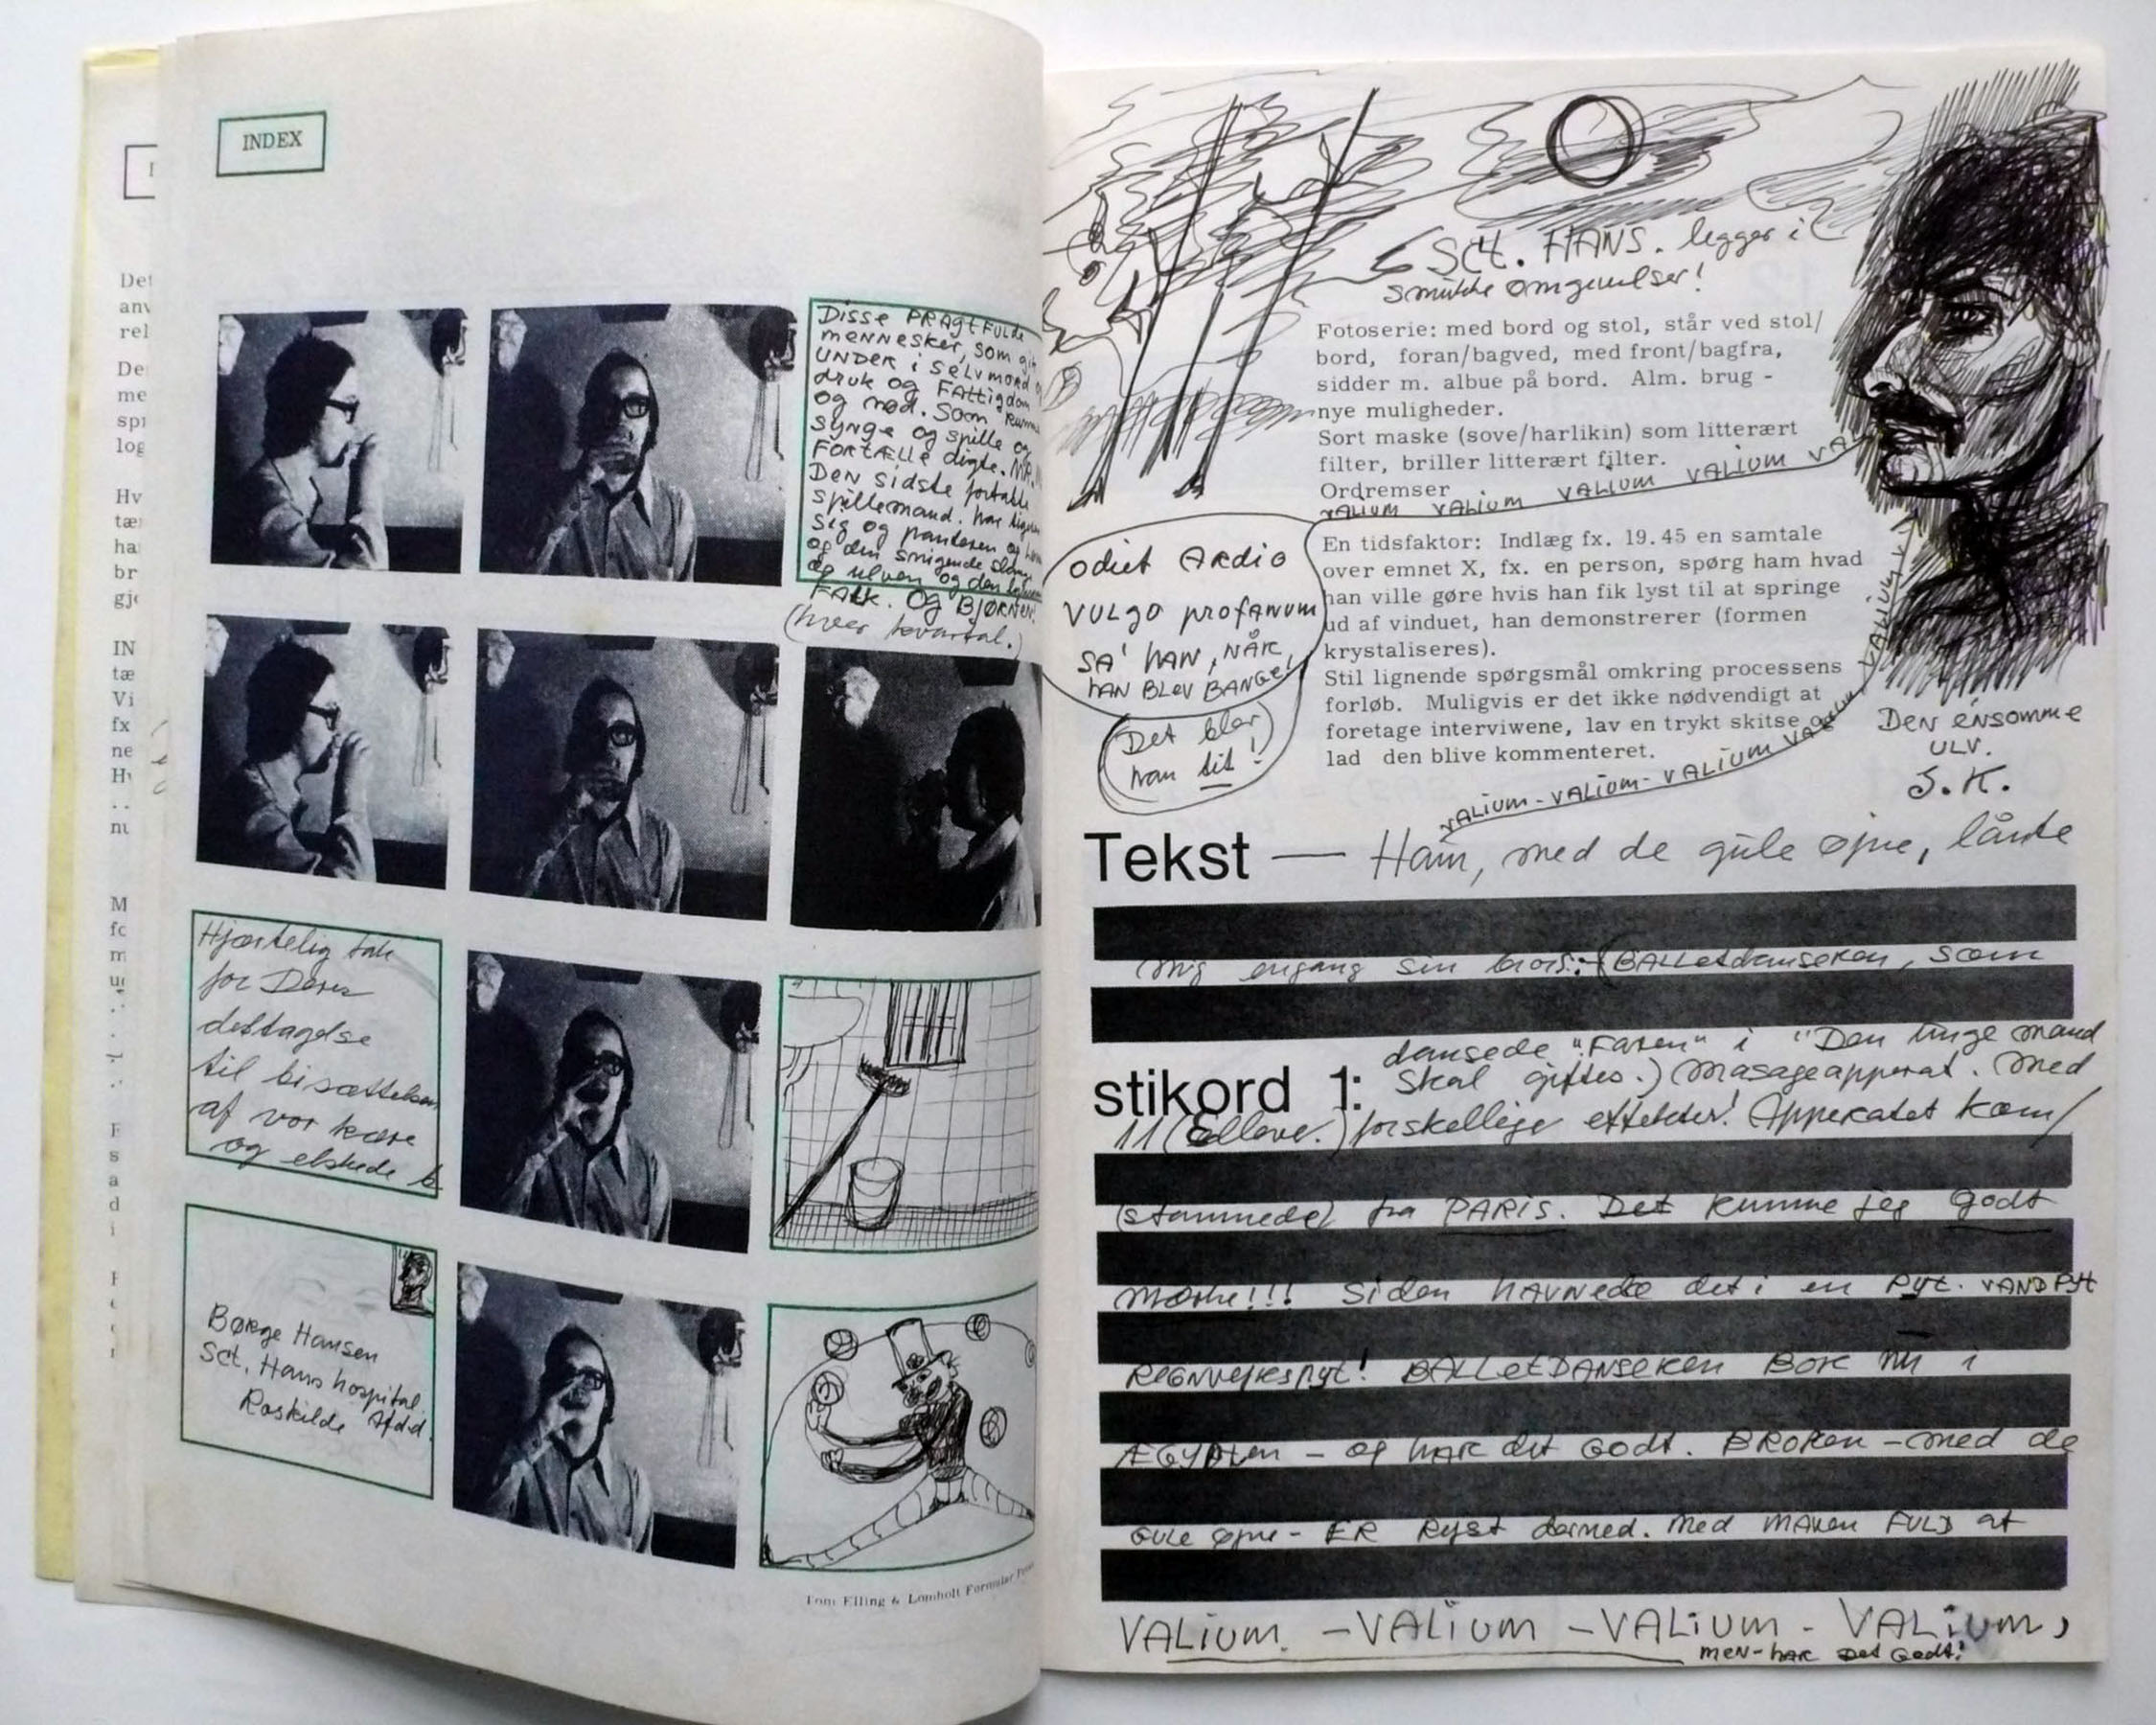 INDEX
Disse PRAGTFULDE
mennesker, som gik
UNDER i selvmord og
druk og FATTigdom
og nød. Som kunne
synge og spille og
FORTÆLLE digte.
Den sidste
spillemand. har
sig og panteren og
og den smigende
og ulven og den
FALK. Og BJØRNEN.
(hver kvartal.)
Hjærtelig tak
for Deres
deltagelse
til bisættelsen
af vor kære
og elskede
Børge Hansen
Sct. Hans hospital
Roskilde Afd.
Tom Elling & Lomholt Formular
Sct. HANS. legger i
smukke omgivelser!
Fotoserie: med bord og stol, står ved stol/
bord, foran/bagved, med front/bagfra,
sidder m. albue på bord. Alm. brug -
nye muligheder.
Sort maske (sove/harlikin) som litterært
filter, briller litterært filter.
Ordremser
VALIUM VALIUM VALIUM VALIUM VA
odiet Ardio
VULgo profANUM
SA' HAN, NÅR
HAN BLEV BANGE!
(Det blev
han tit!
En tidsfaktor: Indlæg fx. 19.45 en samtale
over emnet X, fx. en person, spørg ham hvad
han ville gøre hvis han fik lyst til at springe
ud af vinduet, han demonstrerer (formen
krystaliseres).
Stil lignende spørgsmål omkring processens
forløb. Muligvis er det ikke nødvendigt at
foretage interviwene, lav en trykt skitse og
lad den blive kommenteret.
VALIUM-VALIUM-VALIUM
Den énsomme
ULV.
S.K.
Tekst — Ham, med de gule øjne, lånte
mig engang sin brors: (BALLetdanseren, som
dansede "Faren" i "Den unge mand
skal giftes.) Masageapperat. Med
stikord 1:
11 (Ellove.) forskellige effekter! Apperatet kom/
(stammede) fra PARIS. Det kunne jeg godt
mærke!!! Siden HAVNede det i en Pyt. VANDPyt
REGNvejrspyt! BALLETDANSEREN Bor nu i
ÆGYPten - og har det Godt. BRoren - med de
GULE øjne - ER Rejst derned. Med MAVen FULD af
VALIUM. -VALIUM -VALIUM - VALIUM,
MEN-har det Godt!